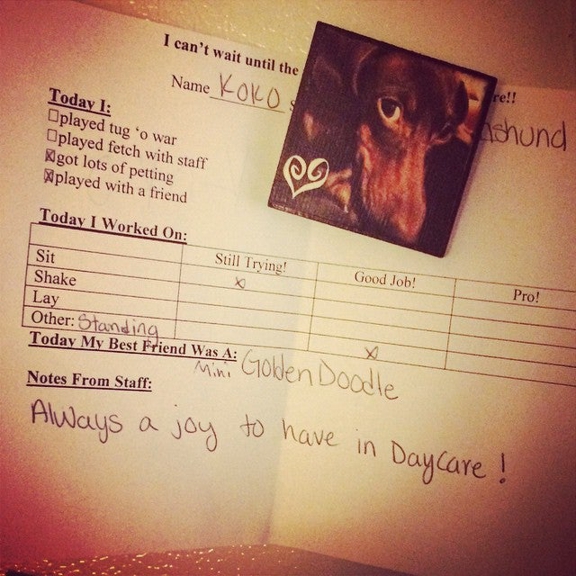 I can't wait until the re!!
Name KOKO shund
Today I:
☐played tug 'o war
☐played fetch with staff
☒got lots of petting
☒played with a friend
Today I Worked On:
Still Trying! Good Job! Pro!
Sit x
Shake
Lay
Other: Standing x
Today My Best Friend Was A: Mini Golden Doodle
Notes From Staff:
Always a joy to have in Daycare!